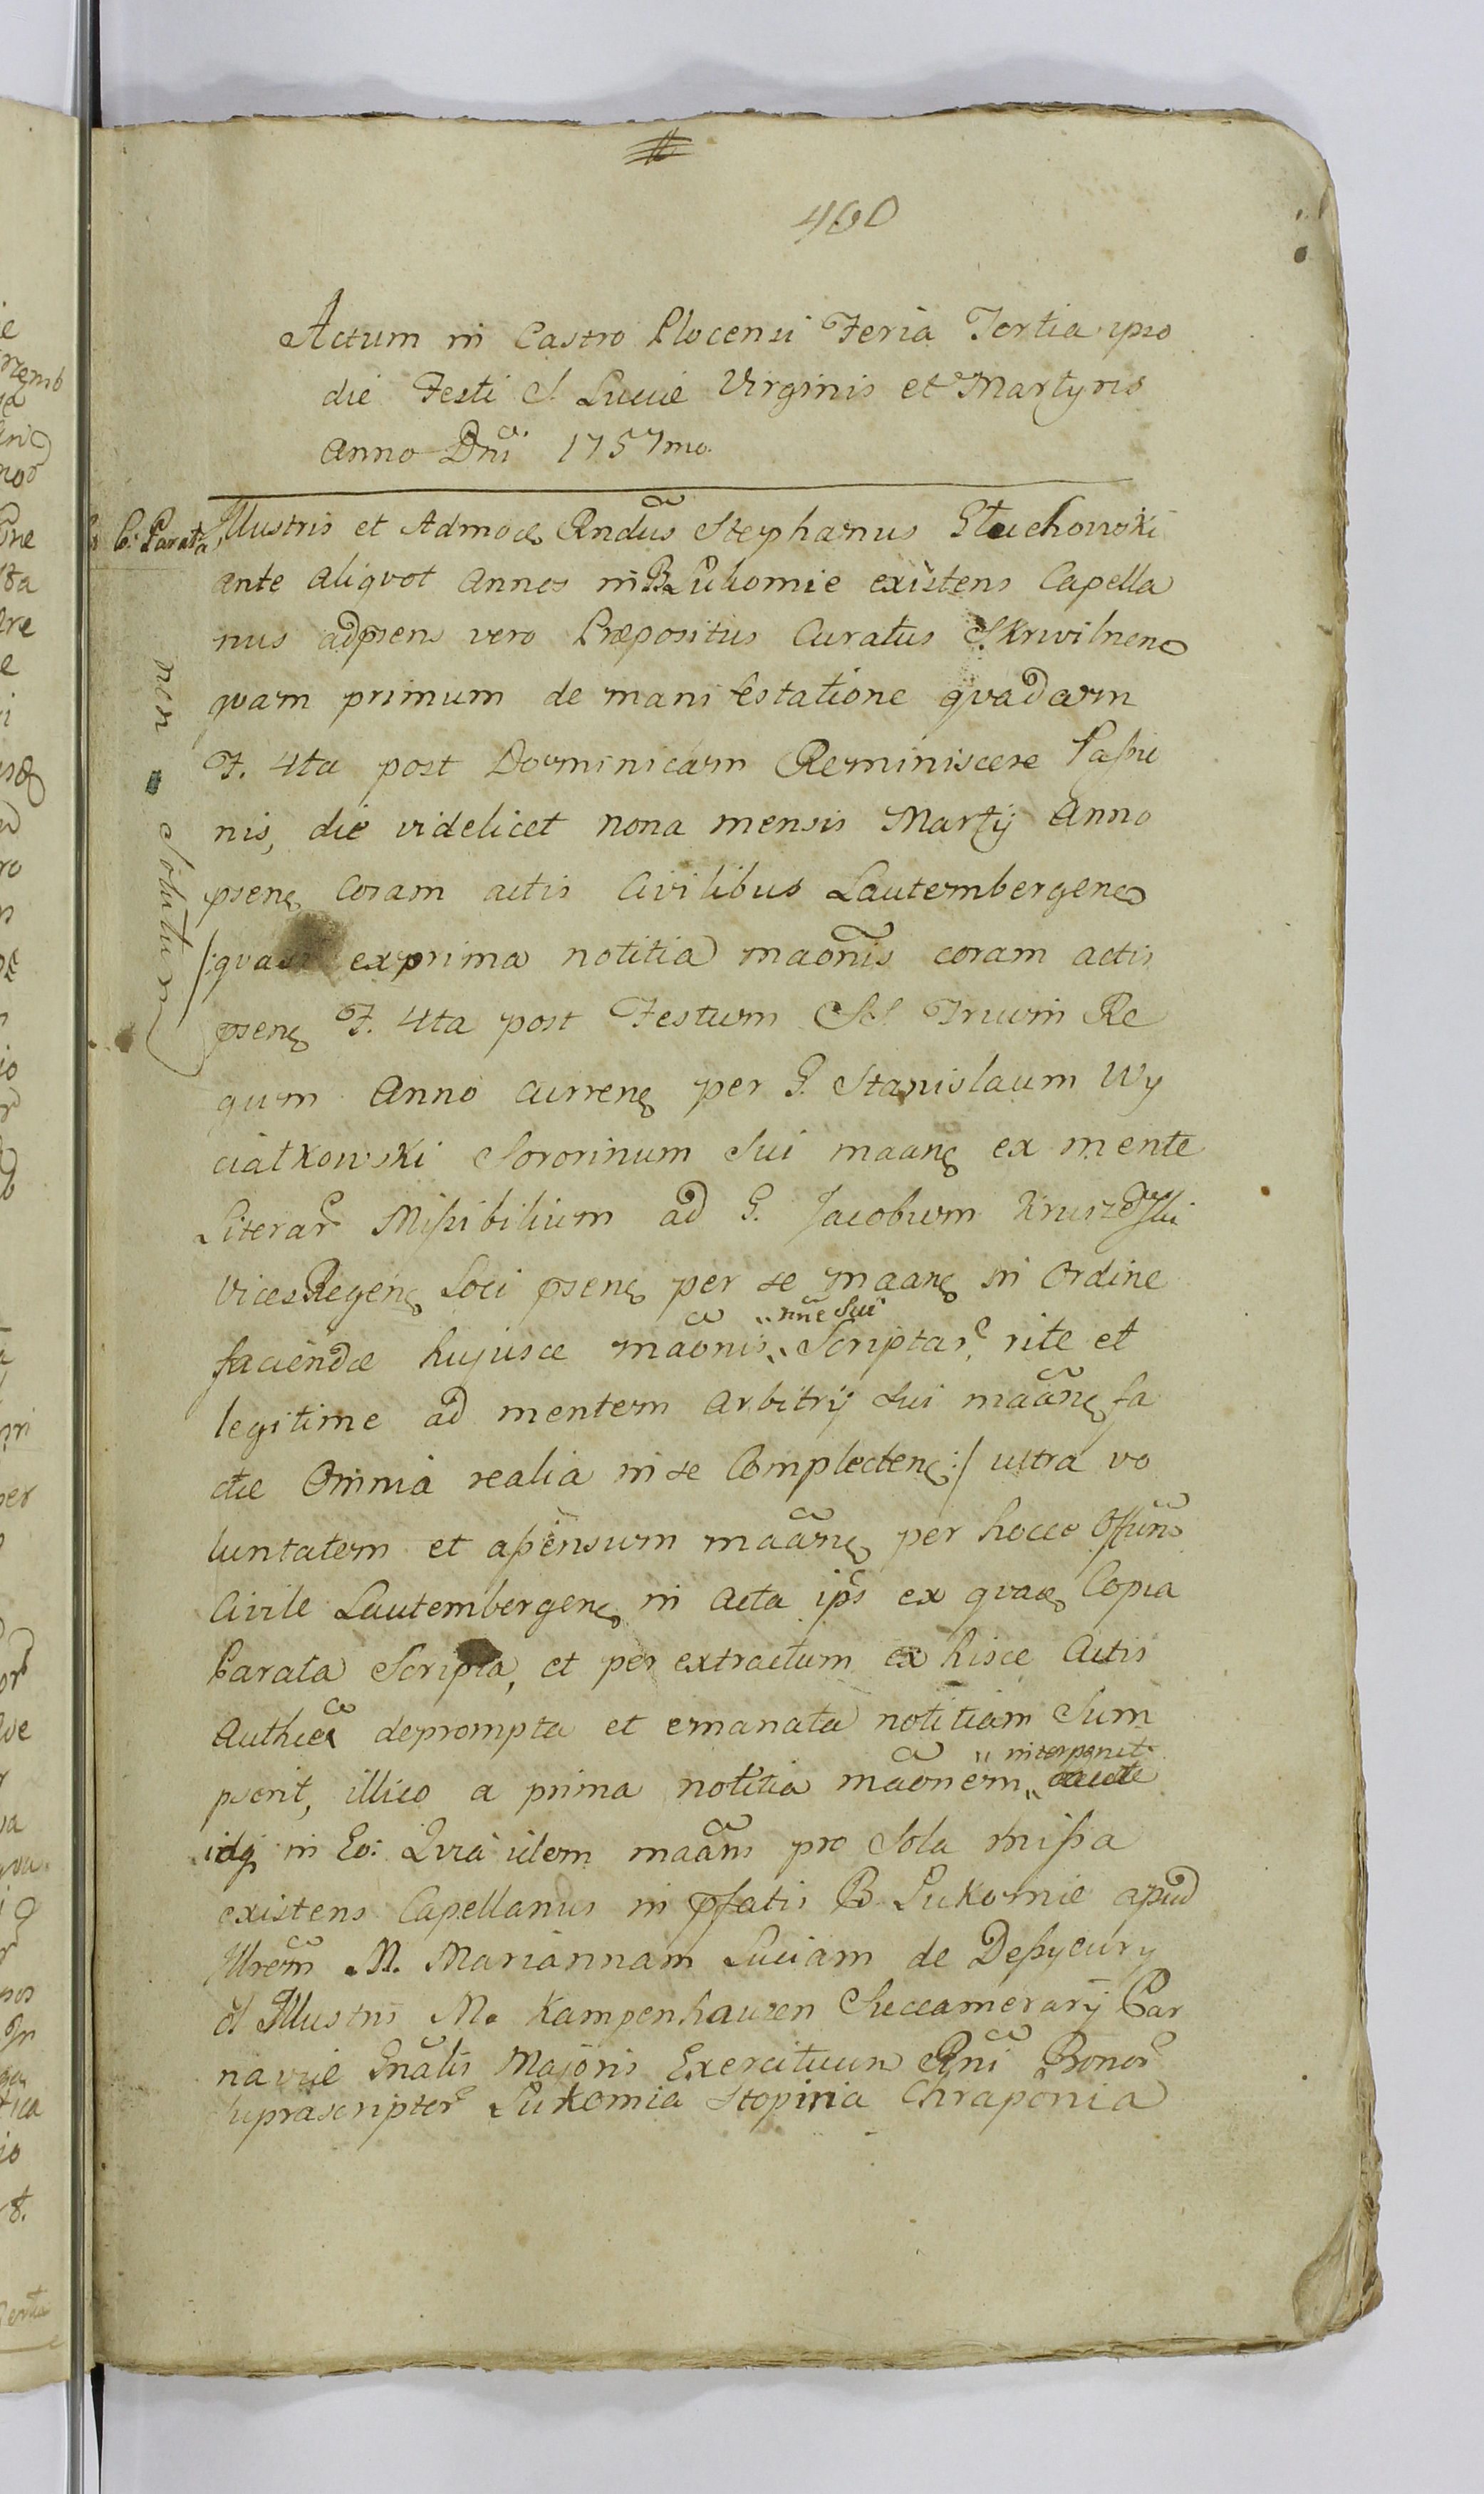 460
Actum in Castro Plocensi Feria Tertia ipso
die Festi S. Luciæ Virginis et Martyris
Anno Dni 1757mo
C. Parata
non solutum
Illustris et Admo Rndus Stephanus Stuchowski
ante aliqvot annos in B. Lukomie existens Capella
nus adpsens vero Præpositus Curatus Skrwilnen
qvam primum de manifestatione qvadam
F. 4ta post Dominicam Reminiscere Passio
nis, die videlicet nona mensis Martij Anno
psen coram actis Civilibus Lautembergen
/:qvasi ex prima notitia maonis coram actis
psen F. 4ta post Festum SS. Trium Re
gum Anno curren per G. Stanislaum Wy
ciatkowski Sororinum Sui maan ex mente
Literar Missibilium ad G. Jacobum Kruszewski
Vices Regen Loci psen per se maan in Ordine
faciendæ hujusce maonis „nne Sui Scriptar, rite et
legitime ad mentem Arbitrij Sui maan fa
ctæ Omnia realia in se Complecten:/ ultra vo
luntatem et assensum maan per hocce Offum
Civile Lautembergen in Acta ips ex qvar Copia
Parata Scripta, et per extractum ex hisce Actis
Authice deprompta et emanata notitiam Sum
pserit, illico a prima notitia maonem „interponit
idq in Eo: Qvia idem maans pro Sola Missa
existens Capellanus in pfatis B. Lukomie apud
Illrem M. Mariannam Luciam de
olim Illustris M. Kampenhauzen Succamerarij Par
naviæ Gnalis Majoris Exercituum Rni Bonor
Suprascriptor Lukomia Stopinia Chraponia